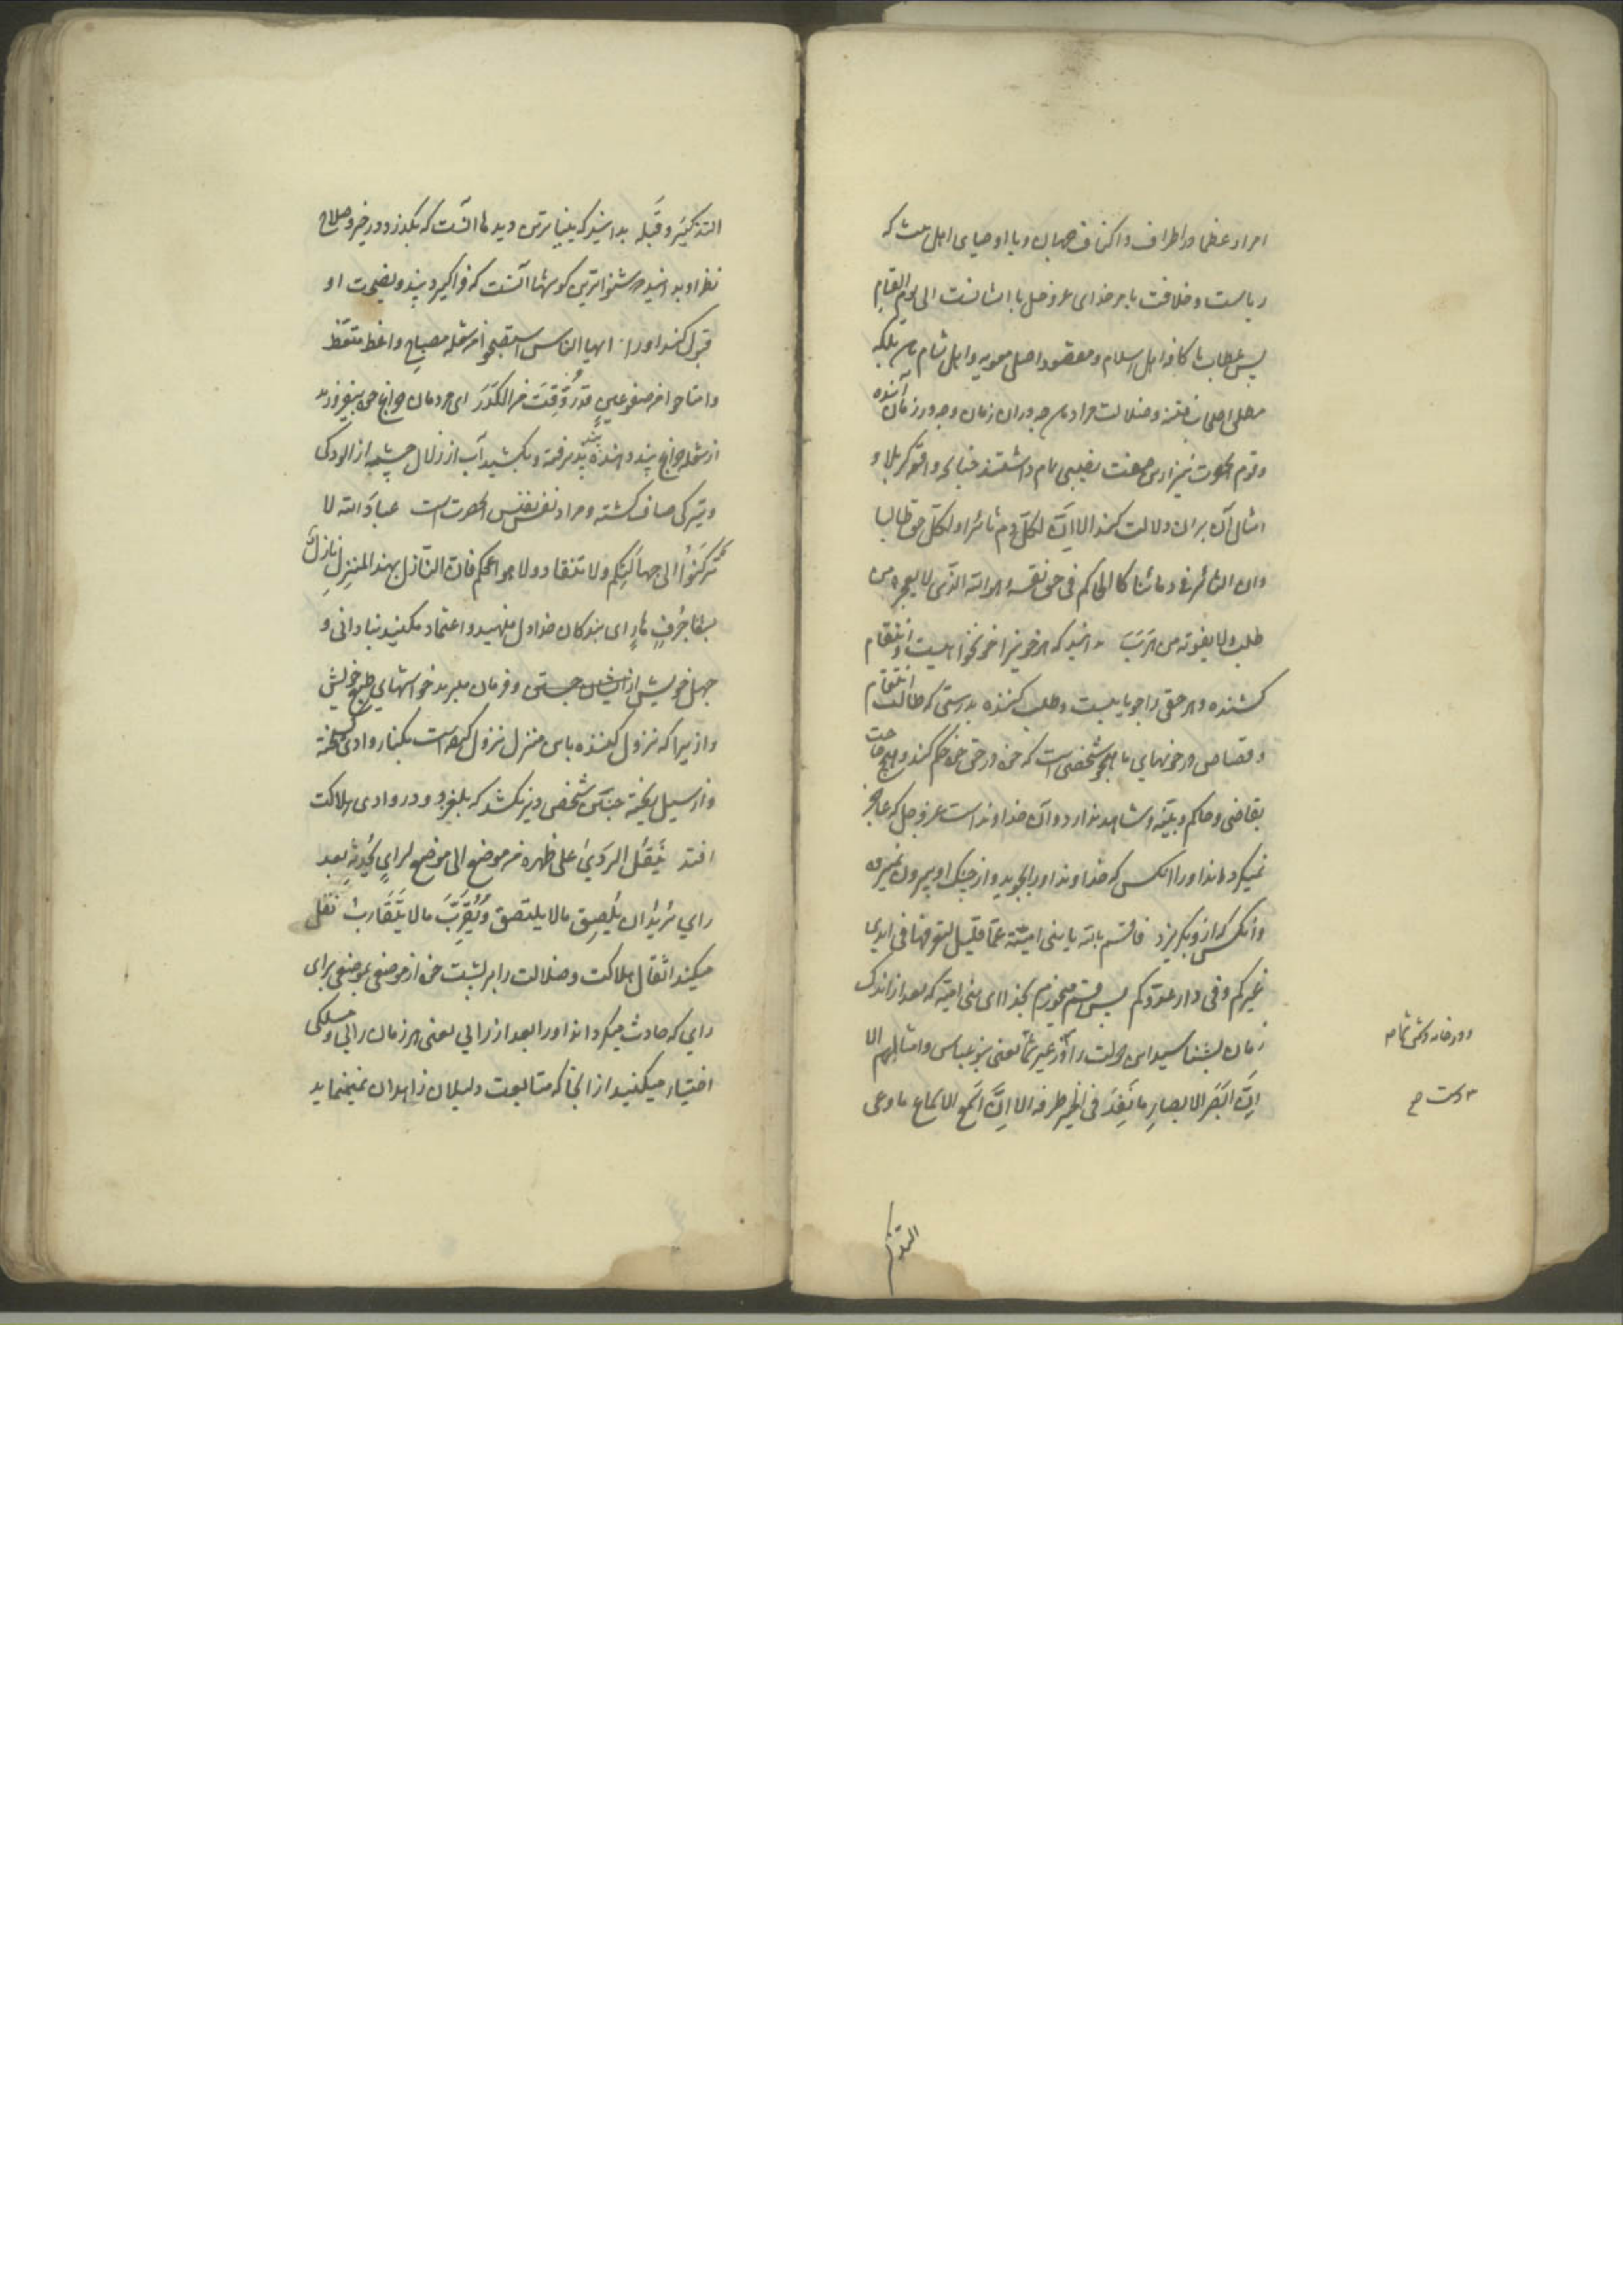 امراء عظما در اطراف و اکناف جهان و با اوصیای اهل بیت که
ریاست و خلافت بامر خدای عزوجل با ایشانست الی یوم القیام
پس خطاب با کافه اهل اسلام و مقصود اصلی معویه و اهل شام بلکه
اصحاب فتنه و ضلالت مراد چه در آن زمان و چه در زمان آینده
و قوم نیز ازین صفت نصیبی تمام داشتند چنانچه واقعه کربلا و
امثال آن بران دلالت کند الا ان لکل دم ثائرا و لکل حق طالبا
وان الثائر فی دمائنا کالحاکم فی حق نفسه و هو الله الذی لا یعجزه من
طلب ولا یفوته من هرب بدانید که هر خونیرا خونخواهیست و انتقام
کشنده و هر حقی را جویاییست و طلب کننده بدرستی که طالب انتقام
و قصاص در خونهای ما همچو شخصی است که خود در حق خود حکم کند و هیچ حاجت
بقاضی و حاکم و بینه و شاهد ندارد و آن خداوند است عزوجل که عاجز
نمیگرداند او را آنکس که خداوند او را بجوید و از چنگ او بیرون نمیرود
و آنکس که ازو بگریزد فاقسم بالله یا بنی امیه عما قلیل لتعرفنها فی ایدی
غیرکم و فی دار عدوکم پس قسم میخورم بخدا ای بنی امیه که بعد از اندک
زمان بشناسید این دولت را در غیر شما یعنی بنو عباس و امثالهم الا
ان ابصر الابصار ما نفذ فی الخیر طرفه الا ان اسمع الاسماع ما وعی
و در خانه دشمن شما
دست
التذکیر
التذکیر و قبله بدانید که بیناترین دیدها آنست که بگذرد در خیر و صلاح
نظر او بدانید که شنواترین گوشها آنست که فراگیرد پند و نصیحت او
قبول کند او را ایها الناس استصبحوا من شعلة مصباح واعظ متعظ
وامتاحوا من صفو عین قد روقت من الکدر ای مردمان چراغ خود بیفروزید
از شعله چراغ پند دهنده پند پذیرفته و بکشید آب از زلال چشمه از آلودگی
و تیرگی صاف گشته و مراد نفس نفیس آنحضرت است عباد الله لا
ترکنوا الی جهالتکم ولا تنقادوا لاهوائکم فان النازل بهذا المنزل نازل
بشفا جرف هار ای بندگان خدا دل منهید و اعتماد مکنید بنادانی و
جهل خویش و فرمان مبرید خواستهای طبع خویش
را زیرا که نزول کننده باین منزل نزول کننده است بکنار وادی شکسته
و از سیل ریخته چنین شخصی دیر نکشد که بلغزد و در وادی هلاکت
افتد ینقل الردی علی ظهره من موضع الی موضع لرای یحدثه بعد
رای یرید ان یلصق ما لا یلتصق و یقرب ما لا یتقارب نقل
میکند اثقال هلاکت و ضلالت را بر پشت خود از موضعی بموضعی برای
رای که حادث میگرداند او را بعد از رایی یعنی هر زمان رایی و مسلکی
اختیار میکنید از آنجا که متابعت دلیلان نمینماید